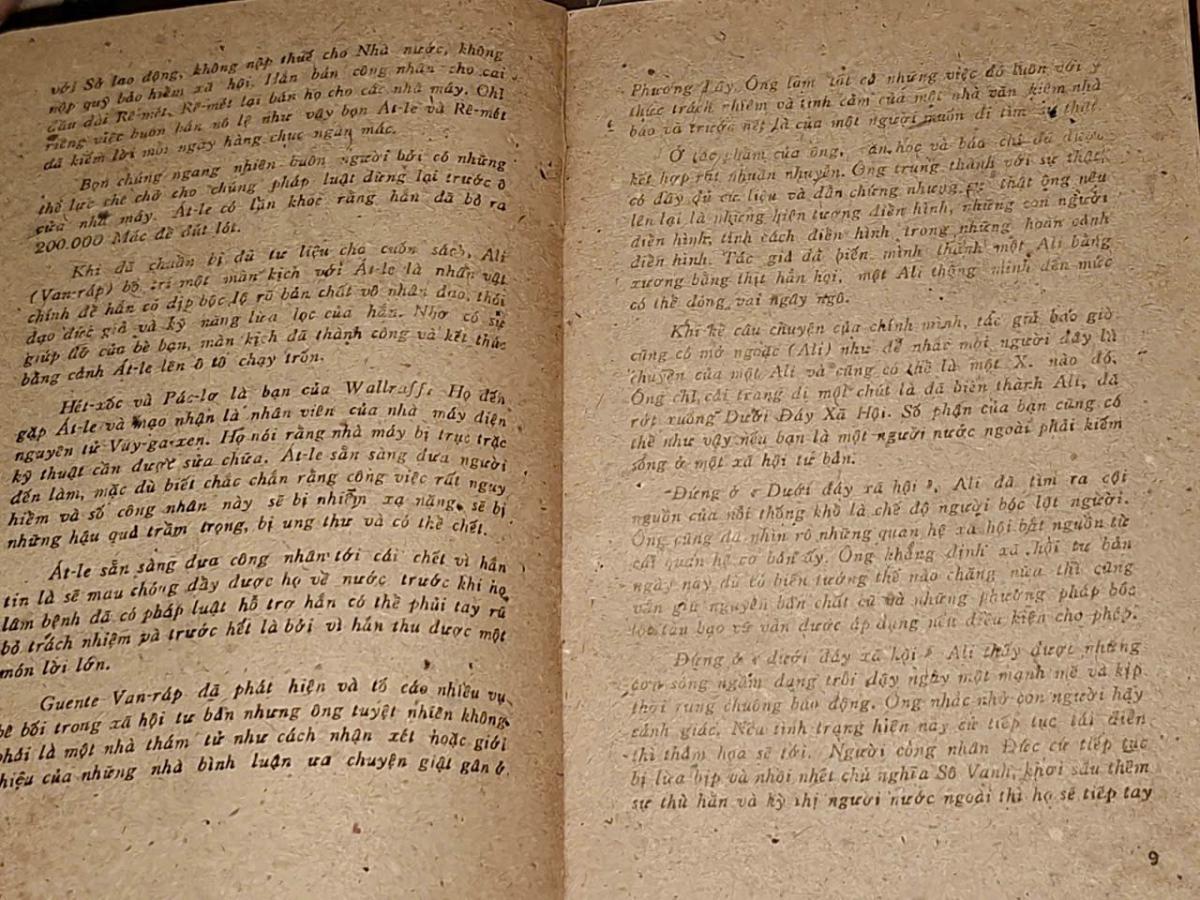 với Sở lao động, không nộp thuế cho Nhà nước, không
nộp quỹ bảo hiểm xã hội. Hắn bán công nhân cho cai
đầu dài Rê-mét. Rê-mét lại bán họ cho các nhà máy. Chỉ
riêng việc buôn bán nô lệ như vậy bọn Át-le và Rê-mét
đã kiếm lời mỗi ngày hàng chục ngàn mác.
Bọn chúng ngang nhiên buôn người bởi có những
thế lực che chở cho chúng pháp luật dừng lại trước ô
cửa nhà máy. Át-le có lần khoe rằng hắn đã bỏ ra
200.000 Mác để đút lót.
Khi đã chuẩn bị đủ tư liệu cho cuốn sách, Ali
(Van-ráp) bố trí một màn kịch với Át-le là nhân vật
chính để hắn có dịp bộc lộ rõ bản chất vô nhân đạo, thói
đạo đức giả và kỹ năng lừa lọc của hắn. Nhờ có sự
giúp đỡ của bè bạn, màn kịch đã thành công và kết thúc
bằng cảnh Át-le lên ô tô chạy trốn.
Hét-xốc và Pác-lơ là bạn của Wallraff. Họ đến
gặp Át-le và mạo nhận là nhân viên của nhà máy điện
nguyên tử Vuy-ga-xen. Họ nói rằng nhà máy bị trục trặc
kỹ thuật cần được sửa chữa. Át-le sẵn sàng đưa người
đến làm, mặc dù biết chắc chắn rằng công việc rất nguy
hiểm và số công nhân này sẽ bị nhiễm xạ nặng, sẽ bị
những hậu quả trầm trọng, bị ung thư và có thể chết.
Át-le sẵn sàng đưa công nhân tới cái chết vì hắn
tin là sẽ mau chóng đẩy được họ về nước trước khi họ
lâm bệnh đã có pháp luật hỗ trợ hắn có thể phủi tay rũ
bỏ trách nhiệm và trước hết là bởi vì hắn thu được một
món lời lớn.
Guente Van-ráp đã phát hiện và tố cáo nhiều vụ
bê bối trong xã hội tư bản nhưng ông tuyệt nhiên không
phải là một nhà thám tử như cách nhận xét hoặc giới
thiệu của những nhà bình luận ưa chuyện giật gân ở
Phương Tây. Ông làm tất cả những việc đó luôn với ý
thức trách nhiệm và tình cảm của một nhà văn kiêm nhà
báo và trước hết là của một người muốn đi tìm sự thật.
Ở tác phẩm của ông, văn học và báo chí đã được
kết hợp rất nhuần nhuyễn. Ông trung thành với sự thật,
có đầy đủ cứ liệu và dẫn chứng nhưng sự thật ông nêu
lên lại là những hiện tượng điển hình, những con người
điển hình, tính cách điển hình trong những hoàn cảnh
điển hình. Tác giả đã biến mình thành một Ali bằng
xương bằng thịt hẳn hoi, một Ali thông minh đến mức
có thể đóng vai ngây ngô.
Khi kể câu chuyện của chính mình, tác giả bao giờ
cũng có mở ngoặc (Ali) như để nhắc mọi người đây là
chuyện của một Ali và cũng có thể là một X. nào đó.
Ông chỉ cải trang đi một chút là đã biến thành Ali, đã
rớt xuống Dưới Đáy Xã Hội. Số phận của bạn cũng có
thể như vậy nếu bạn là một người nước ngoài phải kiếm
sống ở một xã hội tư bản.
Đứng ở « Dưới đáy xã hội », Ali đã tìm ra cội
nguồn của nỗi thống khổ là chế độ người bóc lột người.
Ông cũng đã nhìn rõ những quan hệ xã hội bắt nguồn từ
cái quan hệ cơ bản ấy. Ông khẳng định xã hội tư bản
ngày nay dù có biến tướng thế nào chăng nữa thì cũng
vẫn giữ nguyên bản chất cũ và những phương pháp bóc
lột tàn bạo cũ vẫn được áp dụng nếu điều kiện cho phép.
Đứng ở « dưới đáy xã hội » Ali thấy được những
cơn sóng ngầm đang trỗi dậy ngày một mạnh mẽ và kịp
thời rung chuông báo động. Ông nhắc nhở con người hãy
cảnh giác. Nếu tình trạng hiện nay cứ tiếp tục tái diễn
thì thảm họa sẽ tới. Người công nhân Đức cứ tiếp tục
bị lừa bịp và nhồi nhét chủ nghĩa Sô Vanh, khơi sâu thêm
sự thù hằn và kỳ thị người nước ngoài thì họ sẽ tiếp tay
9